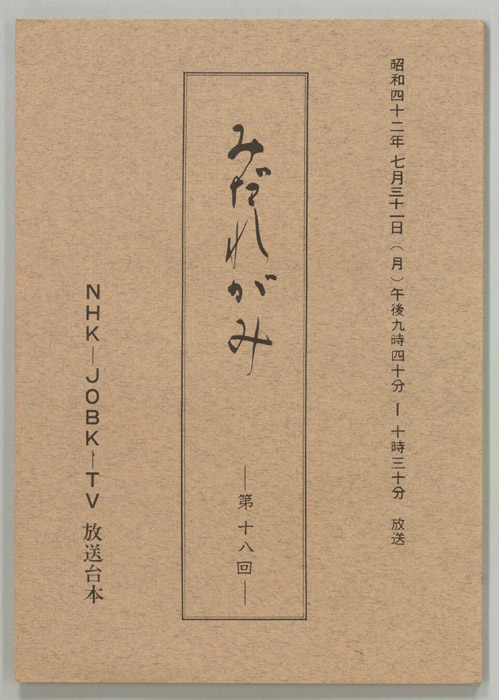 昭和四十二年 七月三十一日（月）午後九時四十分 ー 十時三十分 放送
みだれがみ
―第十八回―
NHK―JOBK―TV 放送台本